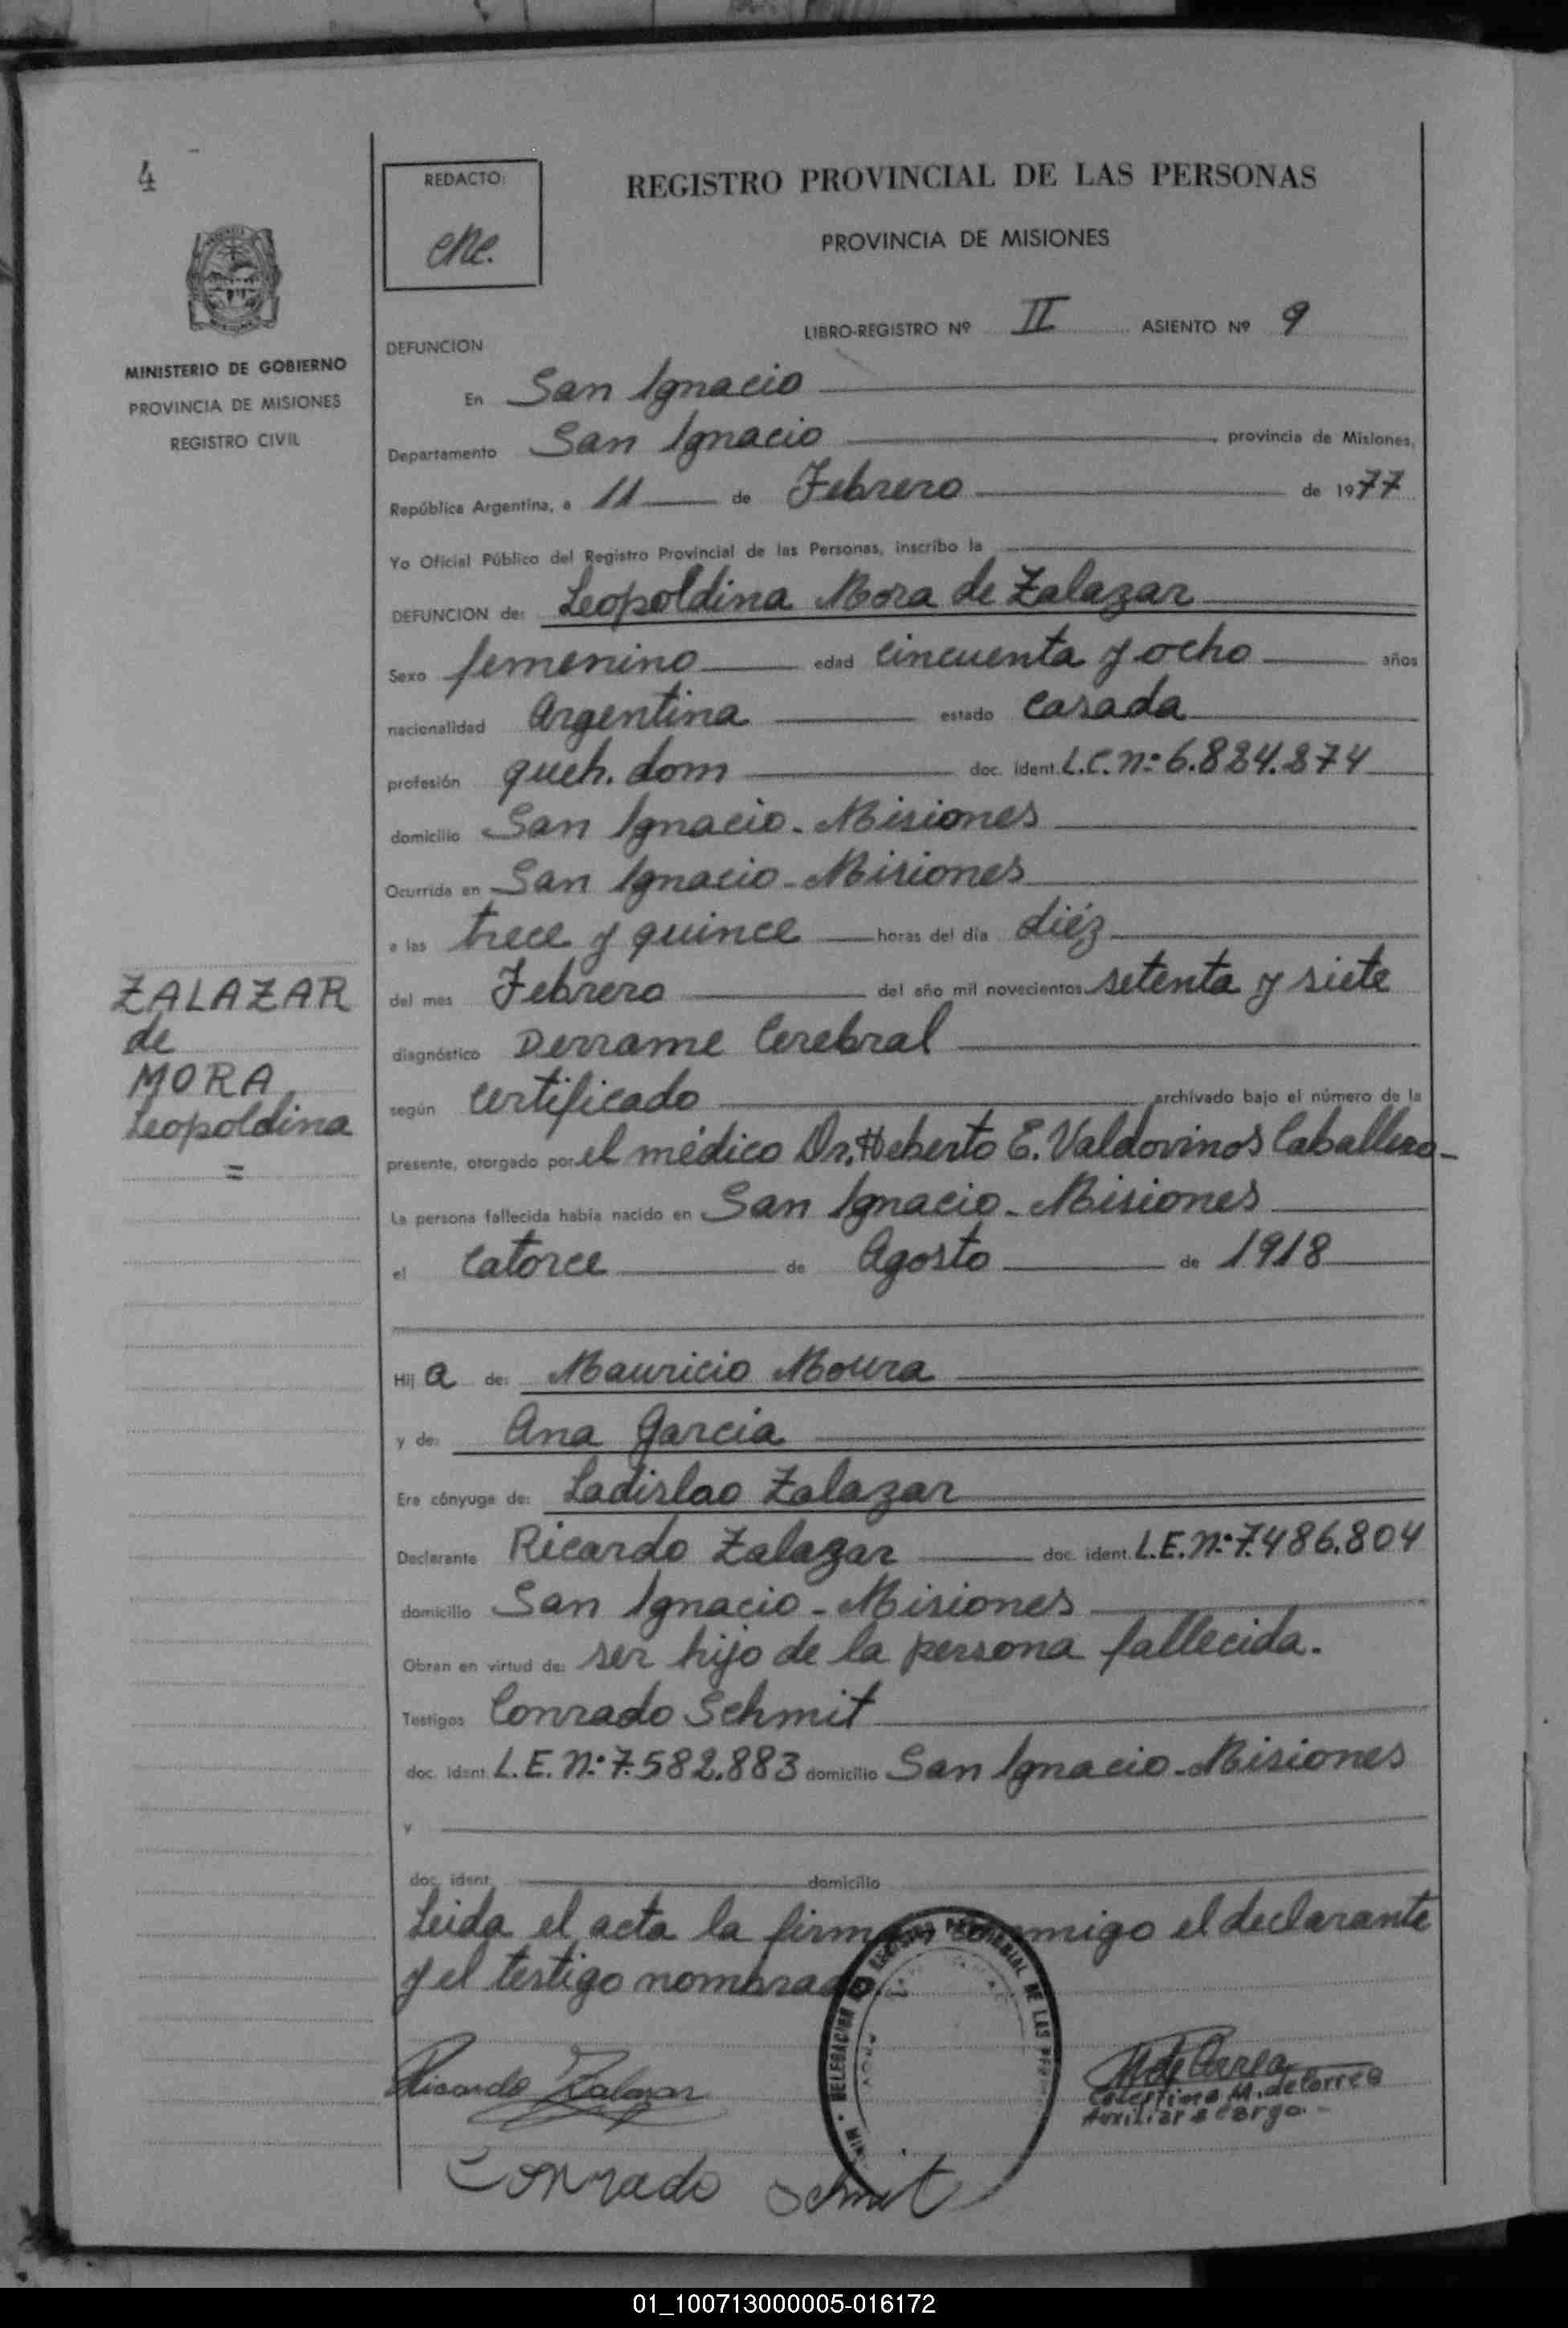 4
REDACTO:
REGISTRO PROVINCIAL DE LAS PERSONAS
PROVINCIA DE MISIONES
LIBRO-REGISTRO Nº II ASIENTO Nº 9
MINISTERIO DE GOBIERNO
PROVINCIA DE MISIONES
REGISTRO CIVIL
DEFUNCION
En San Ignacio
Departamento San Ignacio provincia de Misiones,
República Argentina, a 11 de Febrero de 1977
Yo Oficial Público del Registro Provincial de las Personas, inscribo la
DEFUNCION de: Leopoldina Mora de Zalazar
Sexo femenino edad cincuenta y ocho años
nacionalidad Argentina estado casada
profesión queh. dom doc. ident. L.C. nº 6.824.274
domicilio San Ignacio - Misiones
Ocurrida en San Ignacio - Misiones
a las trece y quince horas del día diéz
del mes Febrero del año mil novecientos setenta y siete
ZALAZAR
de
MORA
Leopoldina
=
diagnóstico Derrame Cerebral
según certificado archivado bajo el número de la
presente, otorgado por el médico Dr. Heberto E. Valdovinos Caballero-
La persona fallecida había nacido en San Ignacio - Misiones
el catorce de Agosto de 1918
Hij a de: Mauricio Moura
y de: Ana Garcia
Era cónyuge de: Ladislao Zalazar
Declarante Ricardo Zalazar doc. ident. L.E. nº 7.486.804
domicilio San Ignacio - Misiones
Obran en virtud de: ser hijo de la persona fallecida.
Testigos Conrado Schmit
doc. ident. L.E. nº 7.582.883 domicilio San Ignacio - Misiones
y
doc. ident. domicilio
Leida el acta la firman conmigo el declarante
y el testigo nombrado.
DELEGACION REGISTRO PROVINCIAL DE LAS
Ricardo Zalazar
M. de Correa
Celestina M. de Correa
Auxiliar a cargo -
Conrado Schmit
01_100713000005-016172